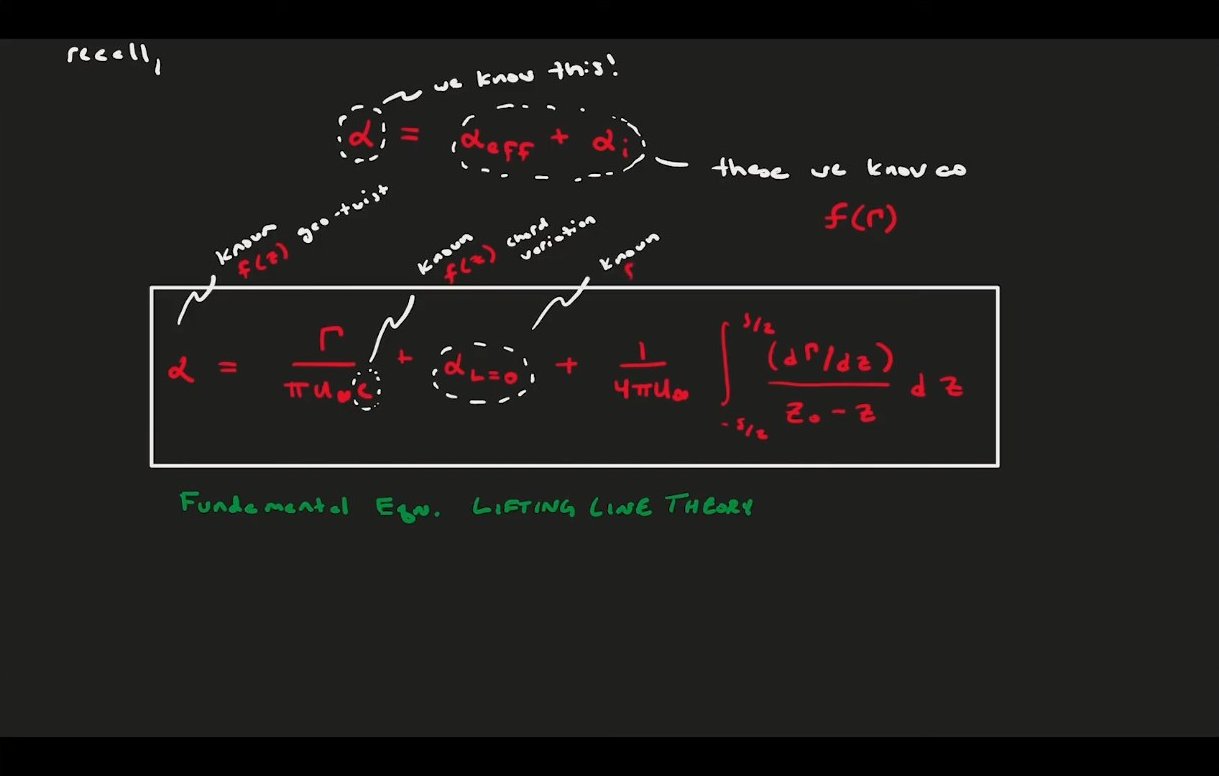 recall,
we know this!
α = α_eff + α_i
these we know as
f(Γ)
known geo-twist
f(z)
known chord variation
f(z)
known
α = Γ / (π U_∞ c) + α_{L=0} + 1 / (4πU_∞) ∫_{-s/2}^{s/2} (dΓ/dz) / (z_0 - z) dz
Fundamental Eqn. LIFTING LINE THEORY